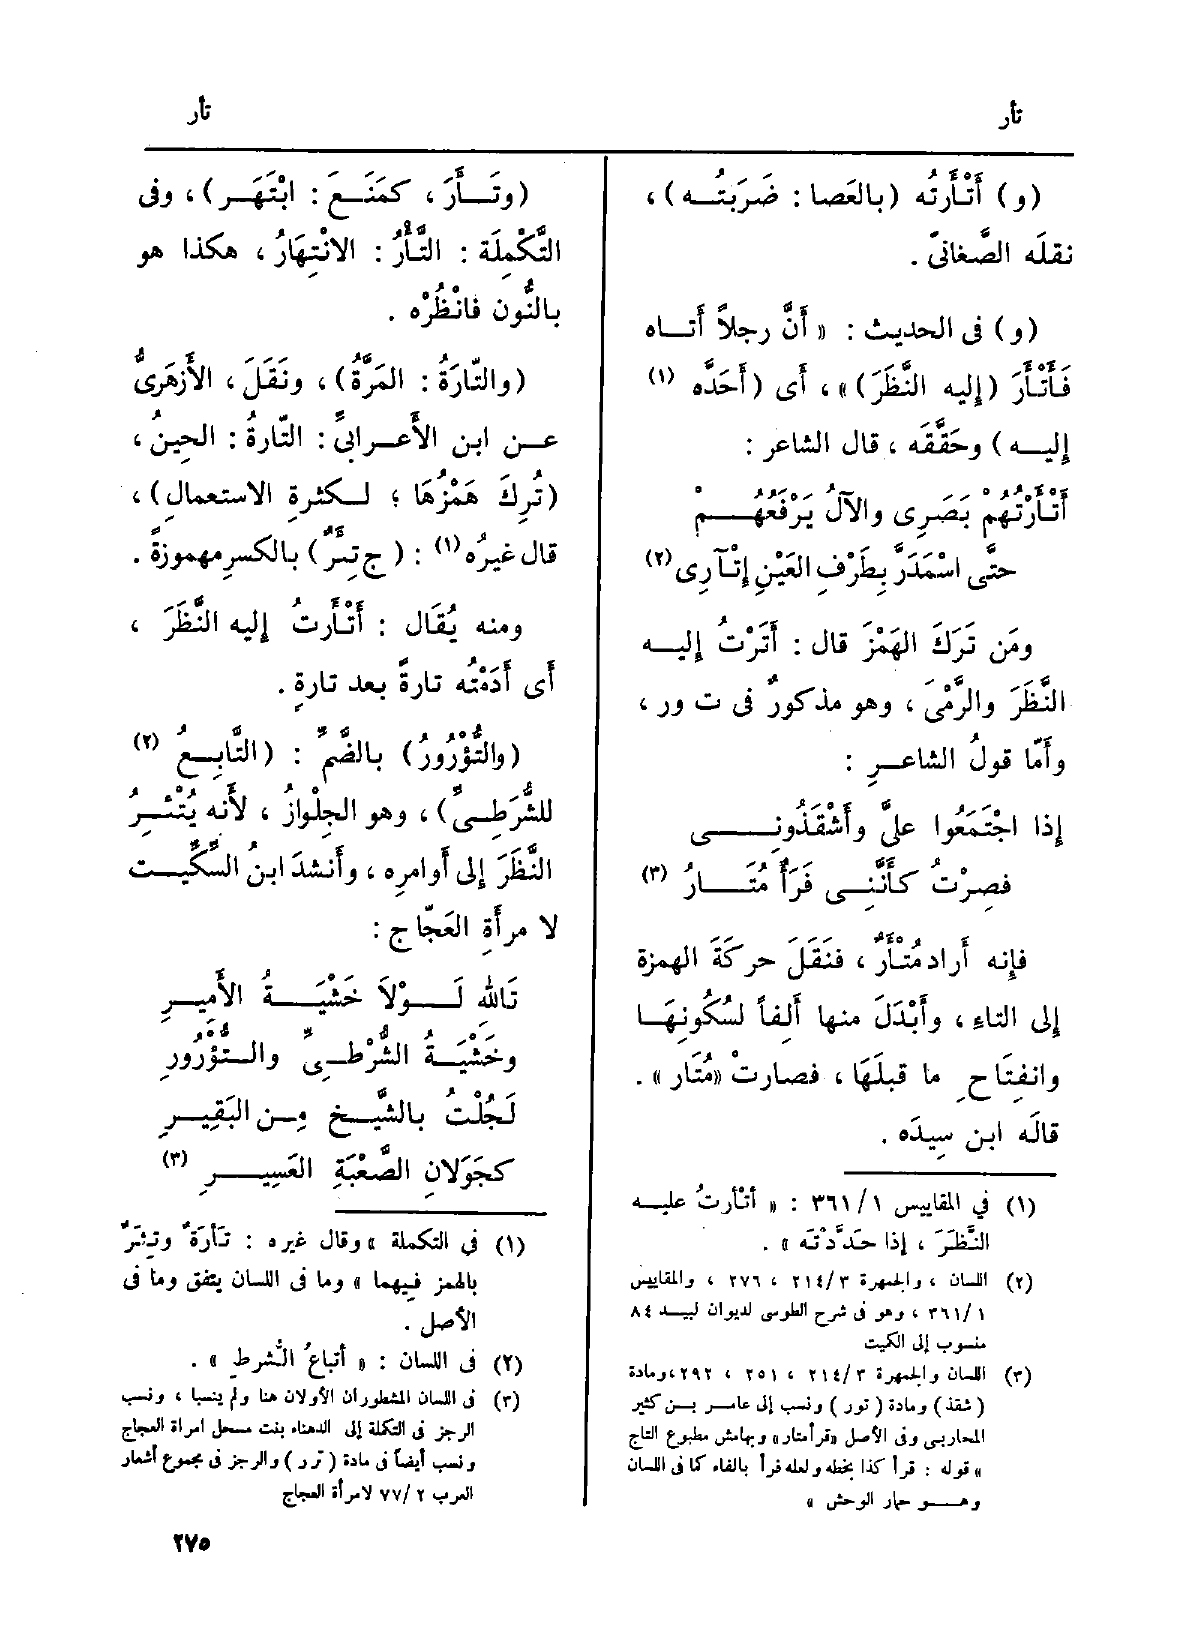 تأر
تأر
(و) أَتْأَرتُه (بالعَصا : ضَرَبتُـــه) ،
نقلَه الصّغانىّ .
(و) فى الحديث : « أَنَّ رجلاً أَتــاه
فَأَتْأَرَ (إِليه النَّظَرَ) » ، أَى (أَحَدَّه (١)
إِليــه) وحَقَّقَه ، قال الشاعر :
أَتْأَرْتُهُمْ بَصَرِى والآلُ يَرْفَعُهُـــــمْ
حتَّى اسْمَدَرَّ بِطَرْفِ العَيْنِ إِتْآرِى (٢)
ومَن تَرَكَ الهَمْزَ قال : أَتَرْتُ إِليـــه
النَّظَرَ والرَّمْىَ ، وهو مذكورٌ فى ت ور ،
وأَمّا قولُ الشاعــرِ :
إِذا اجْتَمَعُوا علىَّ وأَشْقَذُونِـــــى
فصِرْتُ كأَنَّنِــى فَرَأٌ مُتَـــارُ (٣)
فإِنه أَراد مُتْأَرٌ ، فنَقَلَ حركَةَ الهمزة
إِلى التاءِ ، وأَبْدَلَ منها أَلِفاً لسُكُونِهَــا
وانفِتَاحِ ما قبلَهَا ، فصارتْ «مُتَار» .
قالَه ابن سِيدَه .
(١) في المقاييس ٣٦١/١ : « أتْأرتُ عليــه
النَّظَرَ ، إذا حَدَّدْتَه » .
(٢) اللسان ، والجمهرة ٢١٤/٣ ، ٢٧٦ ، والمقاييس
٣٦١/١ ، وهو فى شرح الطوسى لديوان لبيــد ٨٤
منسوب إلى الكميت
(٣) اللسان والجمهرة ٢١٤/٣ ، ٢٥١ ، ٢٩٢ ، ومادة
(شقذ) ومادة (تور) ونسب إلى عامــر بــن كثير
المحاربى وفى الأصل «قرأ متار» وبهامش مطبوع التاج
« قوله : قرأ كذا بخطه ولعله فرأ بالفاء كما فى اللسان
وهــو حمار الوحش »
(وتَــأَرَ ، كمَنَــعَ : ابْتَهَــر) ، وفى
التَّكْمِلَة : التَّأْرُ : الانْتِهَارُ ، هكذا هو
بالنُّون فانْظُرْه .
(والتّارَةُ : المَرَّةُ) ، ونَقَلَ ، الأَزهَرِىُّ
عــن ابن الأَعــرابىِّ : التّارةُ : الحِينُ ،
(تُرِكَ هَمْزُهَا ؛ لــكثرةِ الاستعمالِ) ،
قال غيرُه (١) : (ج تِئَرٌ) بالكسرِ مهموزةً .
ومنه يُقَال : أَتْأَرتُ إِليه النَّظَرَ ،
أَى أَدَمْتُه تارةً بعد تارةٍ .
(والتُّؤْرُورُ) بالضَّمِّ : (التَّابِــعُ (٢)
للشُّرَطِــىِّ) ، وهو الجِلْوازُ ، لأَنه يُتْئِــرُ
النَّظَرَ إِلى أَوامرِه ، وأَنشدَ ابنُ السِّكِّيــت
لا مرأَةِ العَجّاج :
تَاللهِ لَـــوْلاَ خَشْيَـــةُ الأَمِيــرِ
وخَشْيَـــةُ الشُّرْطــىِّ والتُّؤْرُورِ
لَجُلْتُ بالشَّيــخِ مِــن البَقِيــرِ
كجَوَلانِ الصَّعْبَةِ العَسِيـــرِ (٣)
(١) في التكملة « وقال غيره : تَأرَةٌ وتِئَرٌ
بالهمز فــيهما » وما فى اللسان يتفق وما فى
الأصل .
(٢) فى اللسان : « أتباعُ الشُّرطِ » .
(٣) فى اللسان المشطوران الأولان هنا ولم ينسبا ، ونسب
الرجز فى التكملة إلى الدهناء بنت مسحل امرأة العجاج
ونسب أيضاً فى مادة (ترر) والرجز فى مجموع أشعار
العرب ٧٧/٢ لامرأة العجاج
٢٧٥